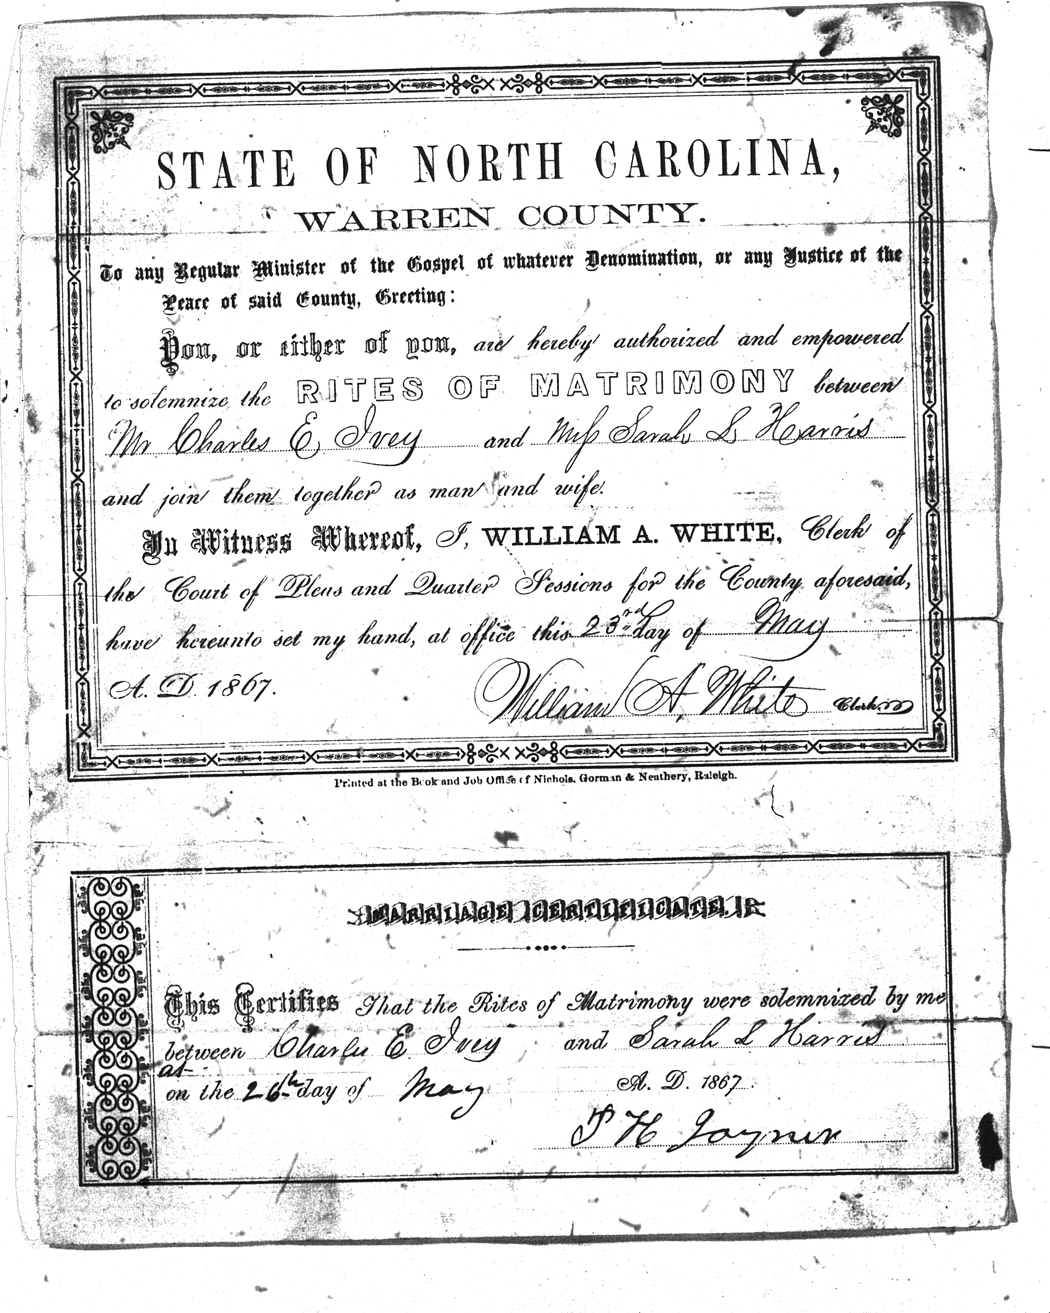 STATE OF NORTH CAROLINA,
WARREN COUNTY.
To any Regular Minister of the Gospel of whatever Denomination, or any Justice of the
Peace of said County, Greeting:
You, or either of you, are hereby authorized and empowered
to solemnize the RITES OF MATRIMONY between
Mr Charles E, Ivey and Miss Sarah L Harris
and join them together as man and wife.
In Witness Whereof, I, WILLIAM A. WHITE, Clerk of
the Court of Pleas and Quarter Sessions for the County aforesaid,
have hereunto set my hand, at office this 23rd day of May
A. D. 1867.
William A. White Clerk
Printed at the Book and Job Office of Nichols, Gorman & Neathery, Raleigh.
MARRIAGE CERTIFICATE.
This Certifies That the Rites of Matrimony were solemnized by me
between Charles E Ivey and Sarah L Harris
at
on the 26th day of May A. D. 1867
H Joyner